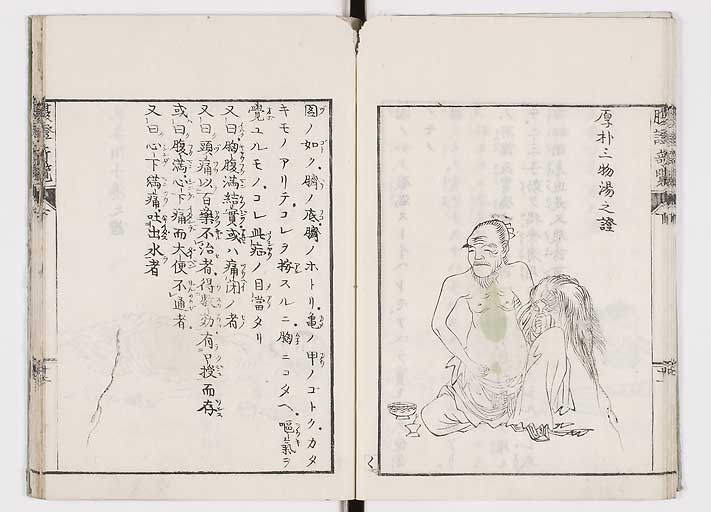 厚朴三物湯之證
圖ノ如ク臍ノ底臍ノホトリ亀ノ甲ノゴトクカタ
キモノアリテコレヲ按スルニ胸ニコタヘ嘔氣ヲ
覺ユルモノコレ此症ノ目當タリ
又曰胸腹滿結實或ハ痛閉ノ者
又曰頭痛以百藥不治者得數効有口授而存
或曰腹滿心下痛而大便不通者
又曰心下滿痛吐出水者